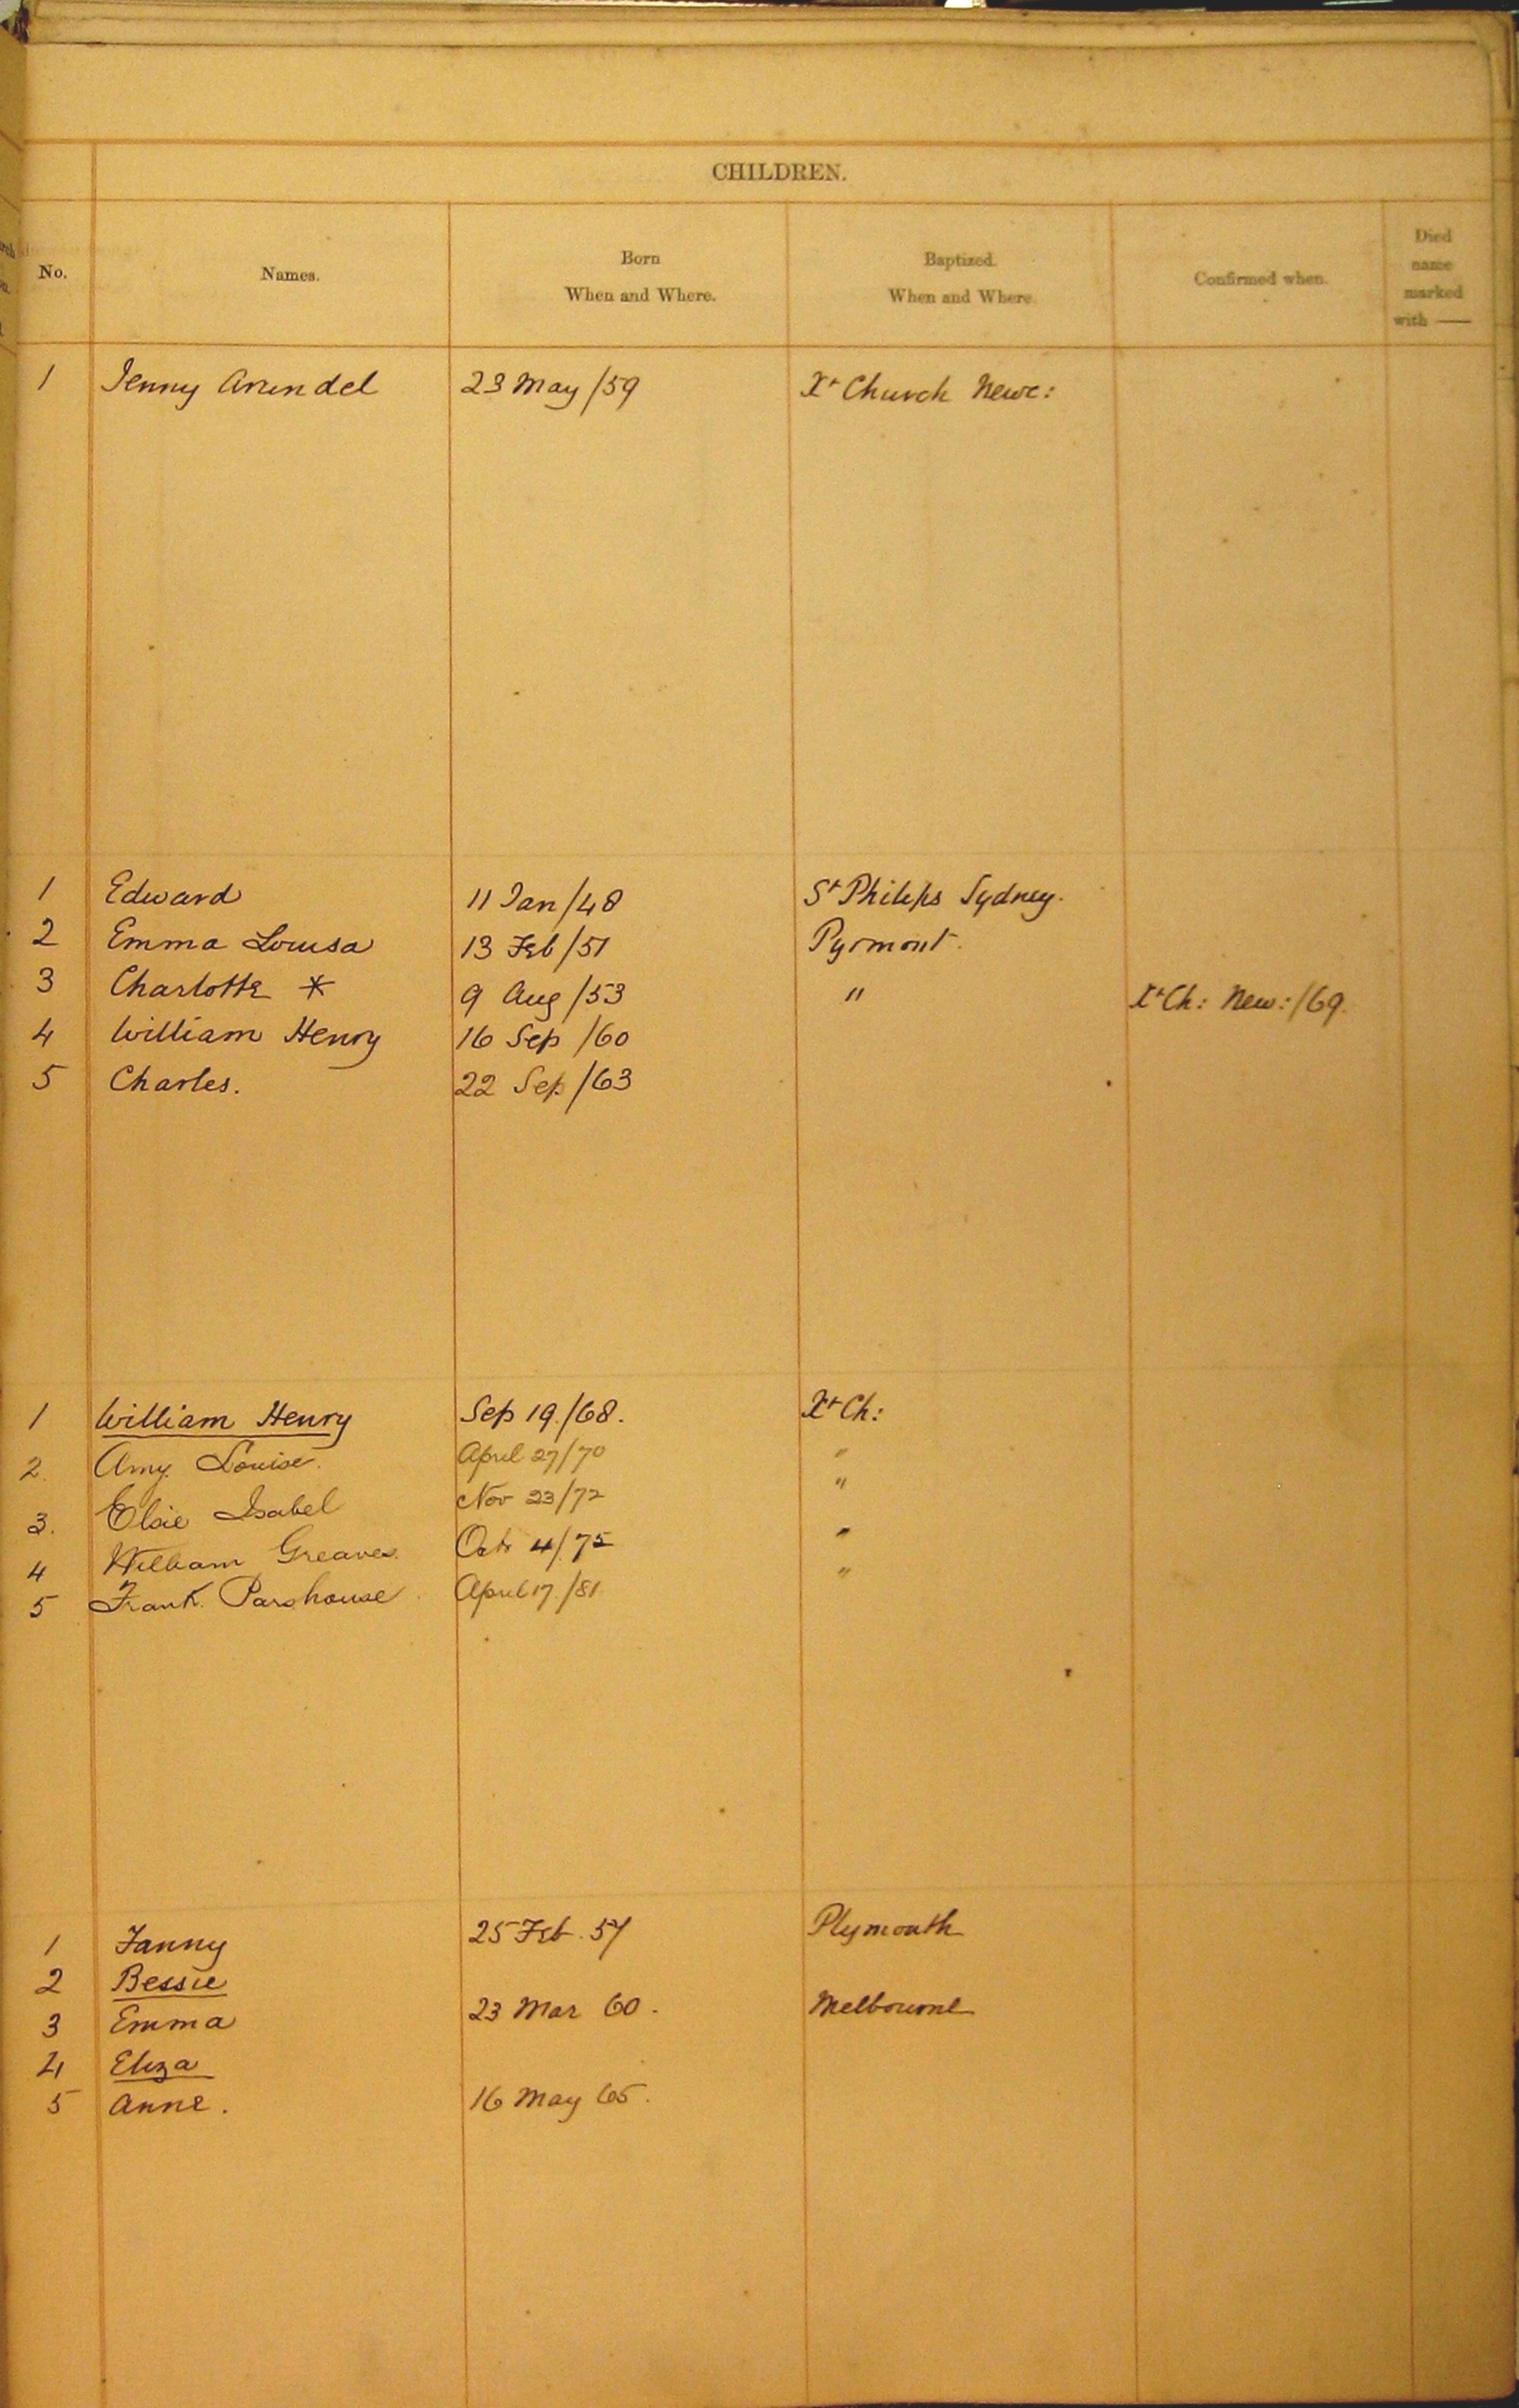 CHILDREN.
No. Names. Born When and Where. Baptized. When and Where. Confirmed when. Died name marked with —
1 Jenny Arundel 23 May /59 Xt Church Newc:
1 Edward 11 Jan /48 St Philips Sydney.
2 Emma Louisa 13 Feb /51 Pyrmont.
3 Charlotte * 9 Aug /53 " Xt Ch: New: /69.
4 William Henry 16 Sep /60
5 Charles. 22 Sep /63
1 William Henry Sep 19./68. Xt Ch:
2. Amy Louise. April 27/70 "
3. Elsie Isabel Nov 23/72 "
4 William Greaves. Oct 4/75 "
5 Frank Parshouse April 17/81 "
1 Fanny 25 Feb. 57 Plymouth
2 Bessie
3 Emma 23 Mar 60. Melbourne
4 Eliza
5 Anne. 16 May 65.